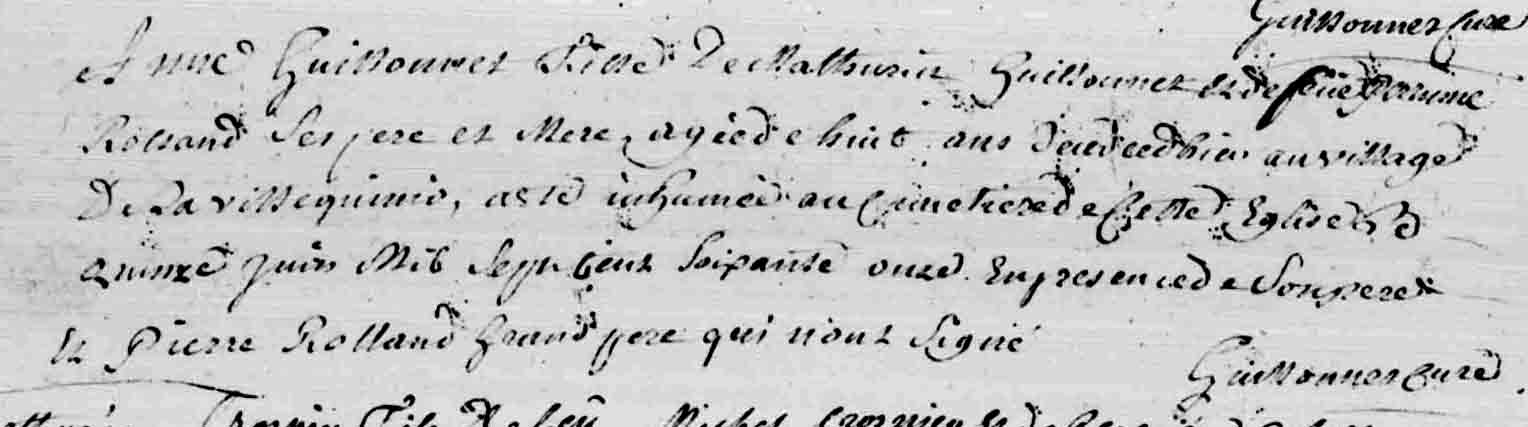 Guillonnet Curé
Anne Guillonnet Fille De Mathurin Guillonnet et de feüe
Rolland Ses pere et Mere, agiée de huit ans deceedée hier au village
De La villequinio, a esté inhumée au Cimetiere de Cette Eglise Le
quinze juin Mil Sept Cent Soixante onze En presence de Son pere
et Pierre Rolland grand pere qui n'ont Signé
Guillonnet Curé
Fils De feü Michel